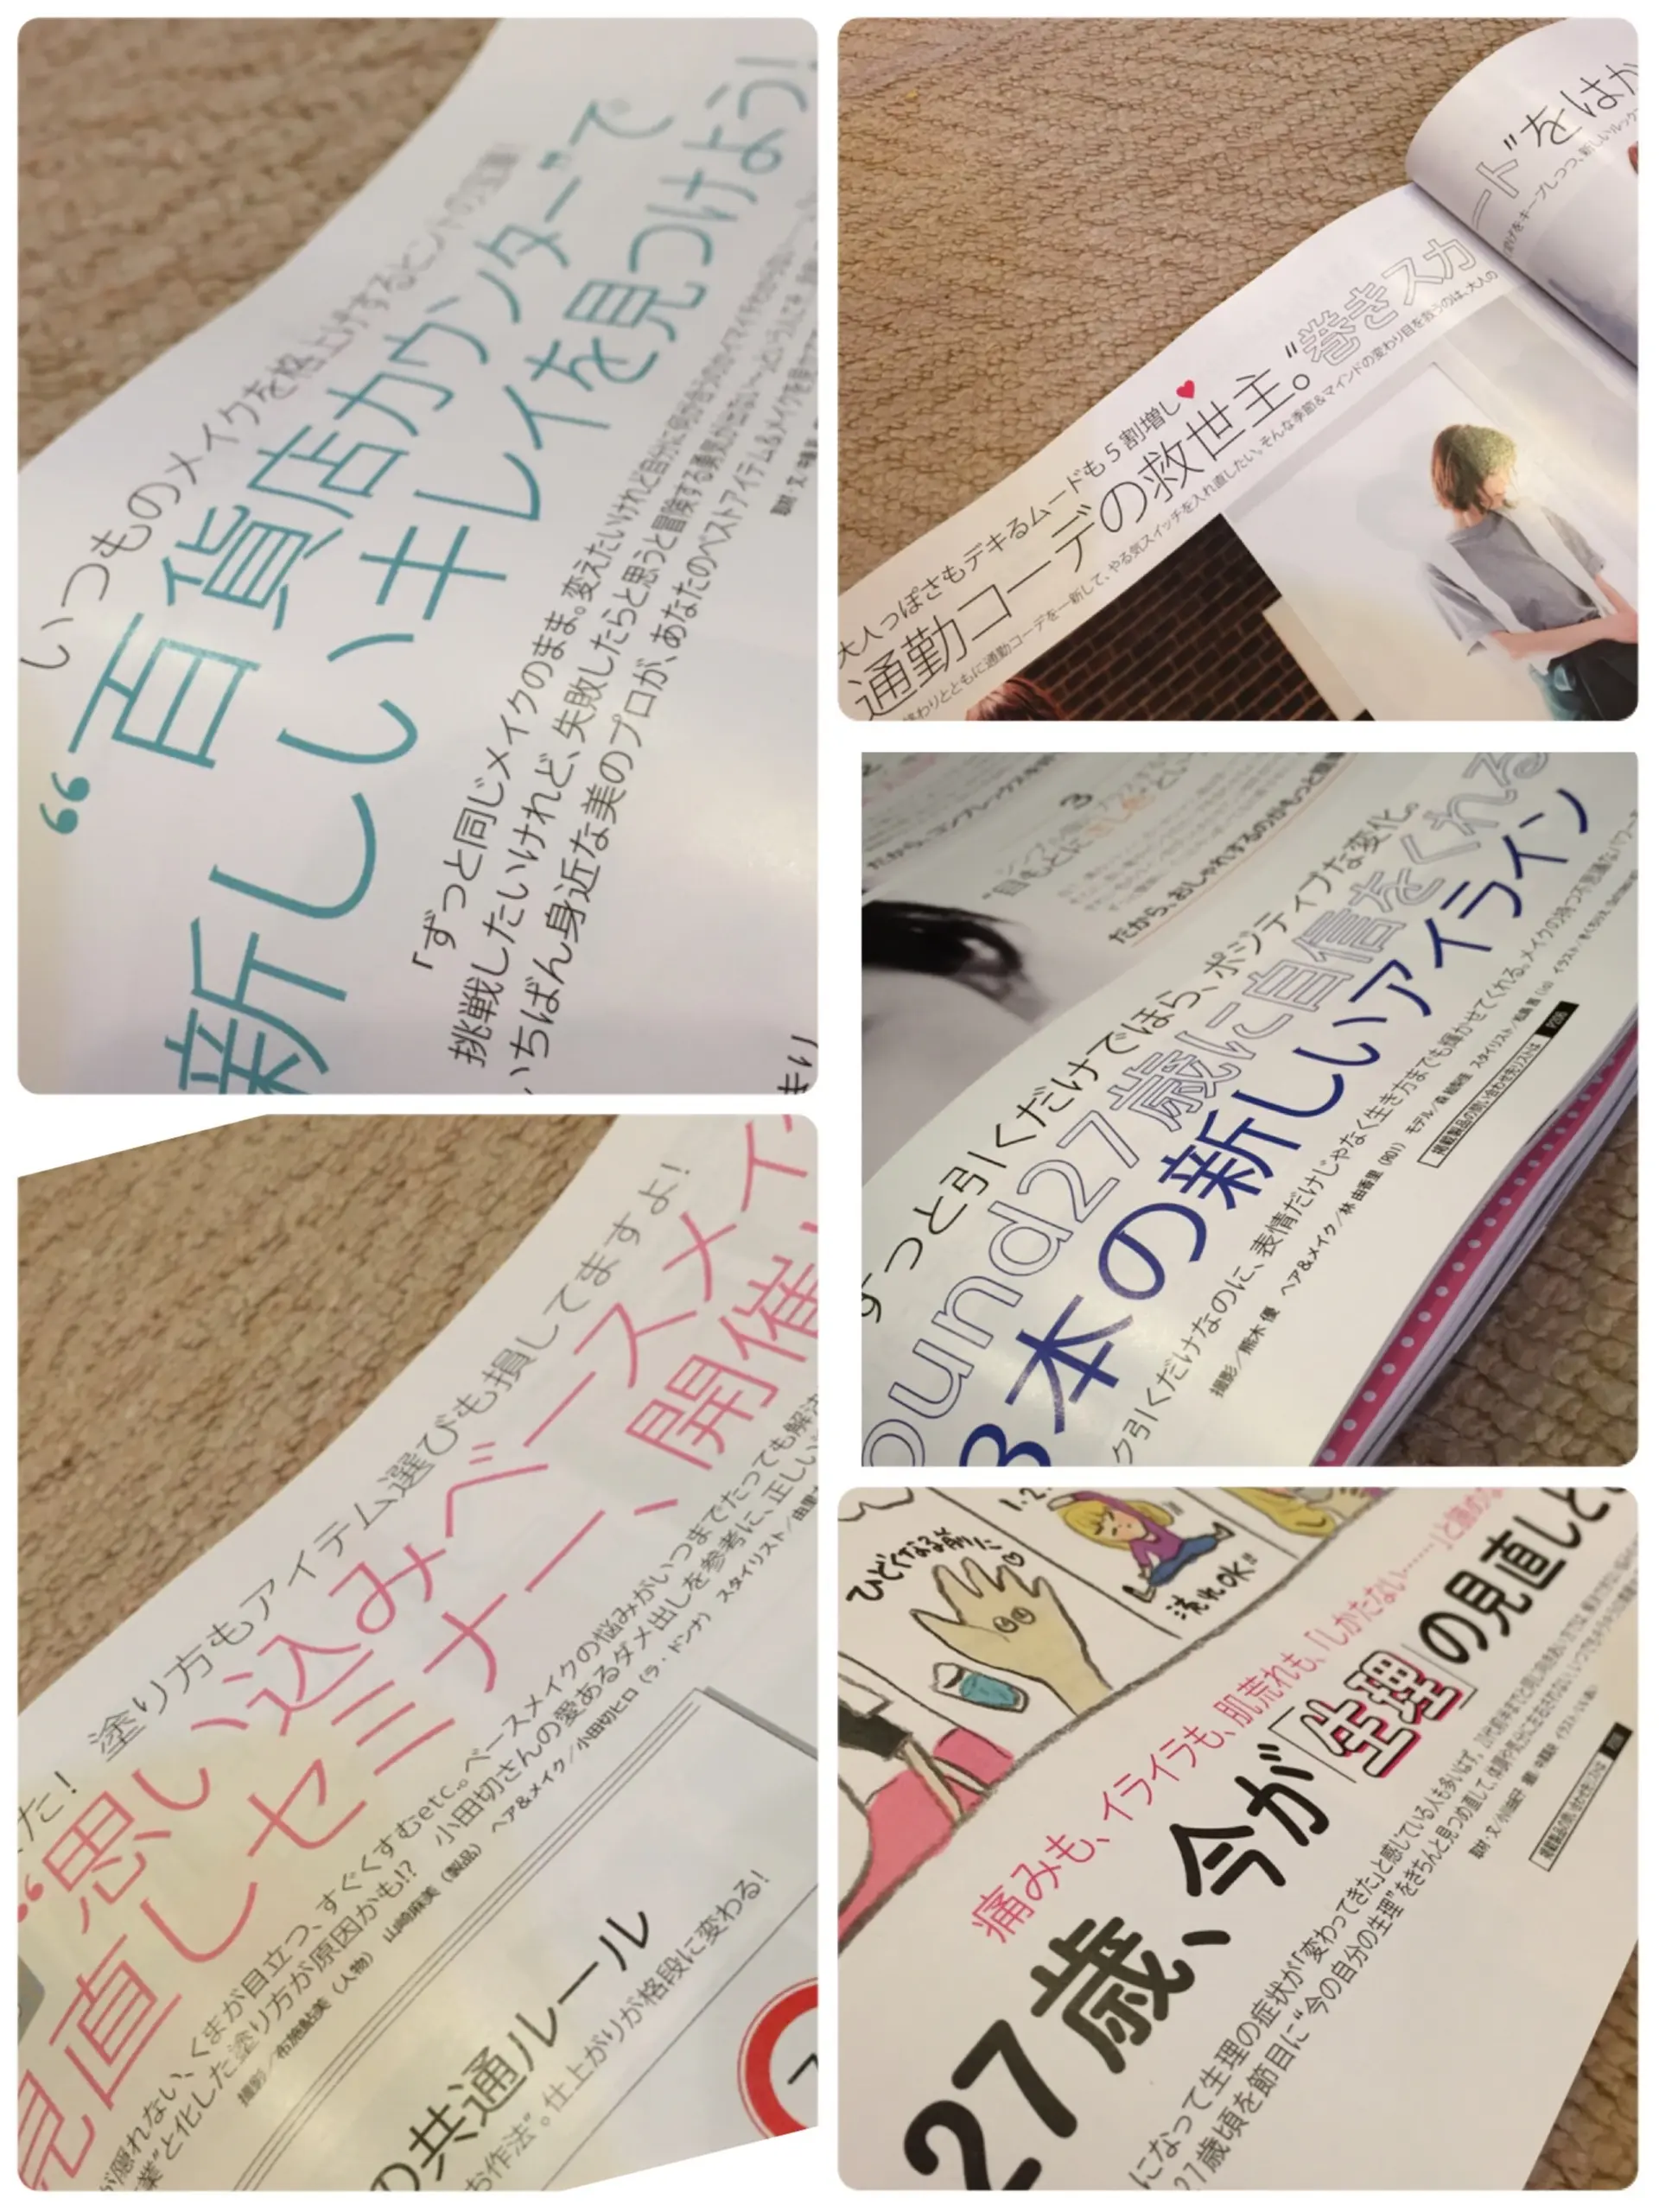 いつものメイクを格上げするヒントの宝庫!
“百貨店カウンター”で
新しいキレイを見つけよう!
「ずっと同じメイクのまま。変えたいけれど自分に何が合うのかイマイチわからない
挑戦したいけれど、失敗したらと思うと冒険する勇気が出ない
いちばん身近な美のプロが、あなたのベストアイテム&メイクを
大人っぽさもデキるムードも5割増し♥
通勤コーデの救世主。“巻きスカート”をはか
終わりとともに通勤コーデを一新して、やる気スイッチを入れ直したい。そんな季節&マインドの変わり目を救うのは、大人の
キープしつつ、新しいルック
だから、おしゃれするのがもっと
ずっと引くだけでほら、ポジティブな変化。
ound27歳に自信をくれる
3本の新しいアイライン
ク引くだけなのに、表情だけじゃなく生き方までも輝かせてくれる。メイクの持つ不思議なパワー
撮影/熊木 優 ヘア&メイク/林 由香里(ROI) モデル/森 絵梨佳 スタイリスト/
掲載製品の問い合わせ先リストは P206
た! 塗り方もアイテム選びも損してますよ!
“思い込みベースメイ
見直しセミナー、開催
が隠れない、くまが目立つ、すぐくすむetc。ベースメイクの悩みがいつまでたっても解決
業”と化した塗り方が原因かも!? 小田切さんの愛あるダメ出しを参考に、正しい
撮影/布施鮎美(人物) 山崎麻美(製品) ヘア&メイク/小田切ヒロ(ラ・ドンナ) スタイリスト/由里
の共通ルール
お作法”。仕上がりが格段に変わる!
ひどくなる前に
流れOK!!
痛みも、イライラも、肌荒れも、「しかたない……」と諦める
27歳、今が「生理」の見直しど
になって生理の症状が「変わってきた」と感じている人も多いはず。
27歳頃を節目に“今の自分の生理”をきちんと見つめ直して、体調や気分に左右されない
掲載製品の問い合わせ先リストは